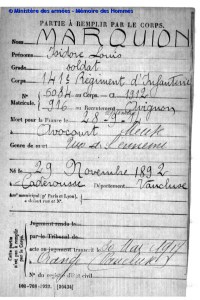 © Ministère des armées - Mémoire des Hommes
PARTIE À REMPLIR PAR LE CORPS.
Nom MARQUION
Prénoms Isidore Louis
Grade soldat
Corps 141e Régiment d'Infanterie
N° au Corps. — Cl. 1912
Matricule. 916 au Recrutement Avignon
Mort pour la France le
Avocourt Meuse
Genre de mort Tué à l'ennemi
Né le 29 Novembre 1892
à Caderousse Département Vaucluse
Cette partie n'est pas à remplir par le Corps.
Jugement rendu le
par le Tribunal de
acte ou jugement transcrit le
Orange Vaucluse
N° du registre d'état civil